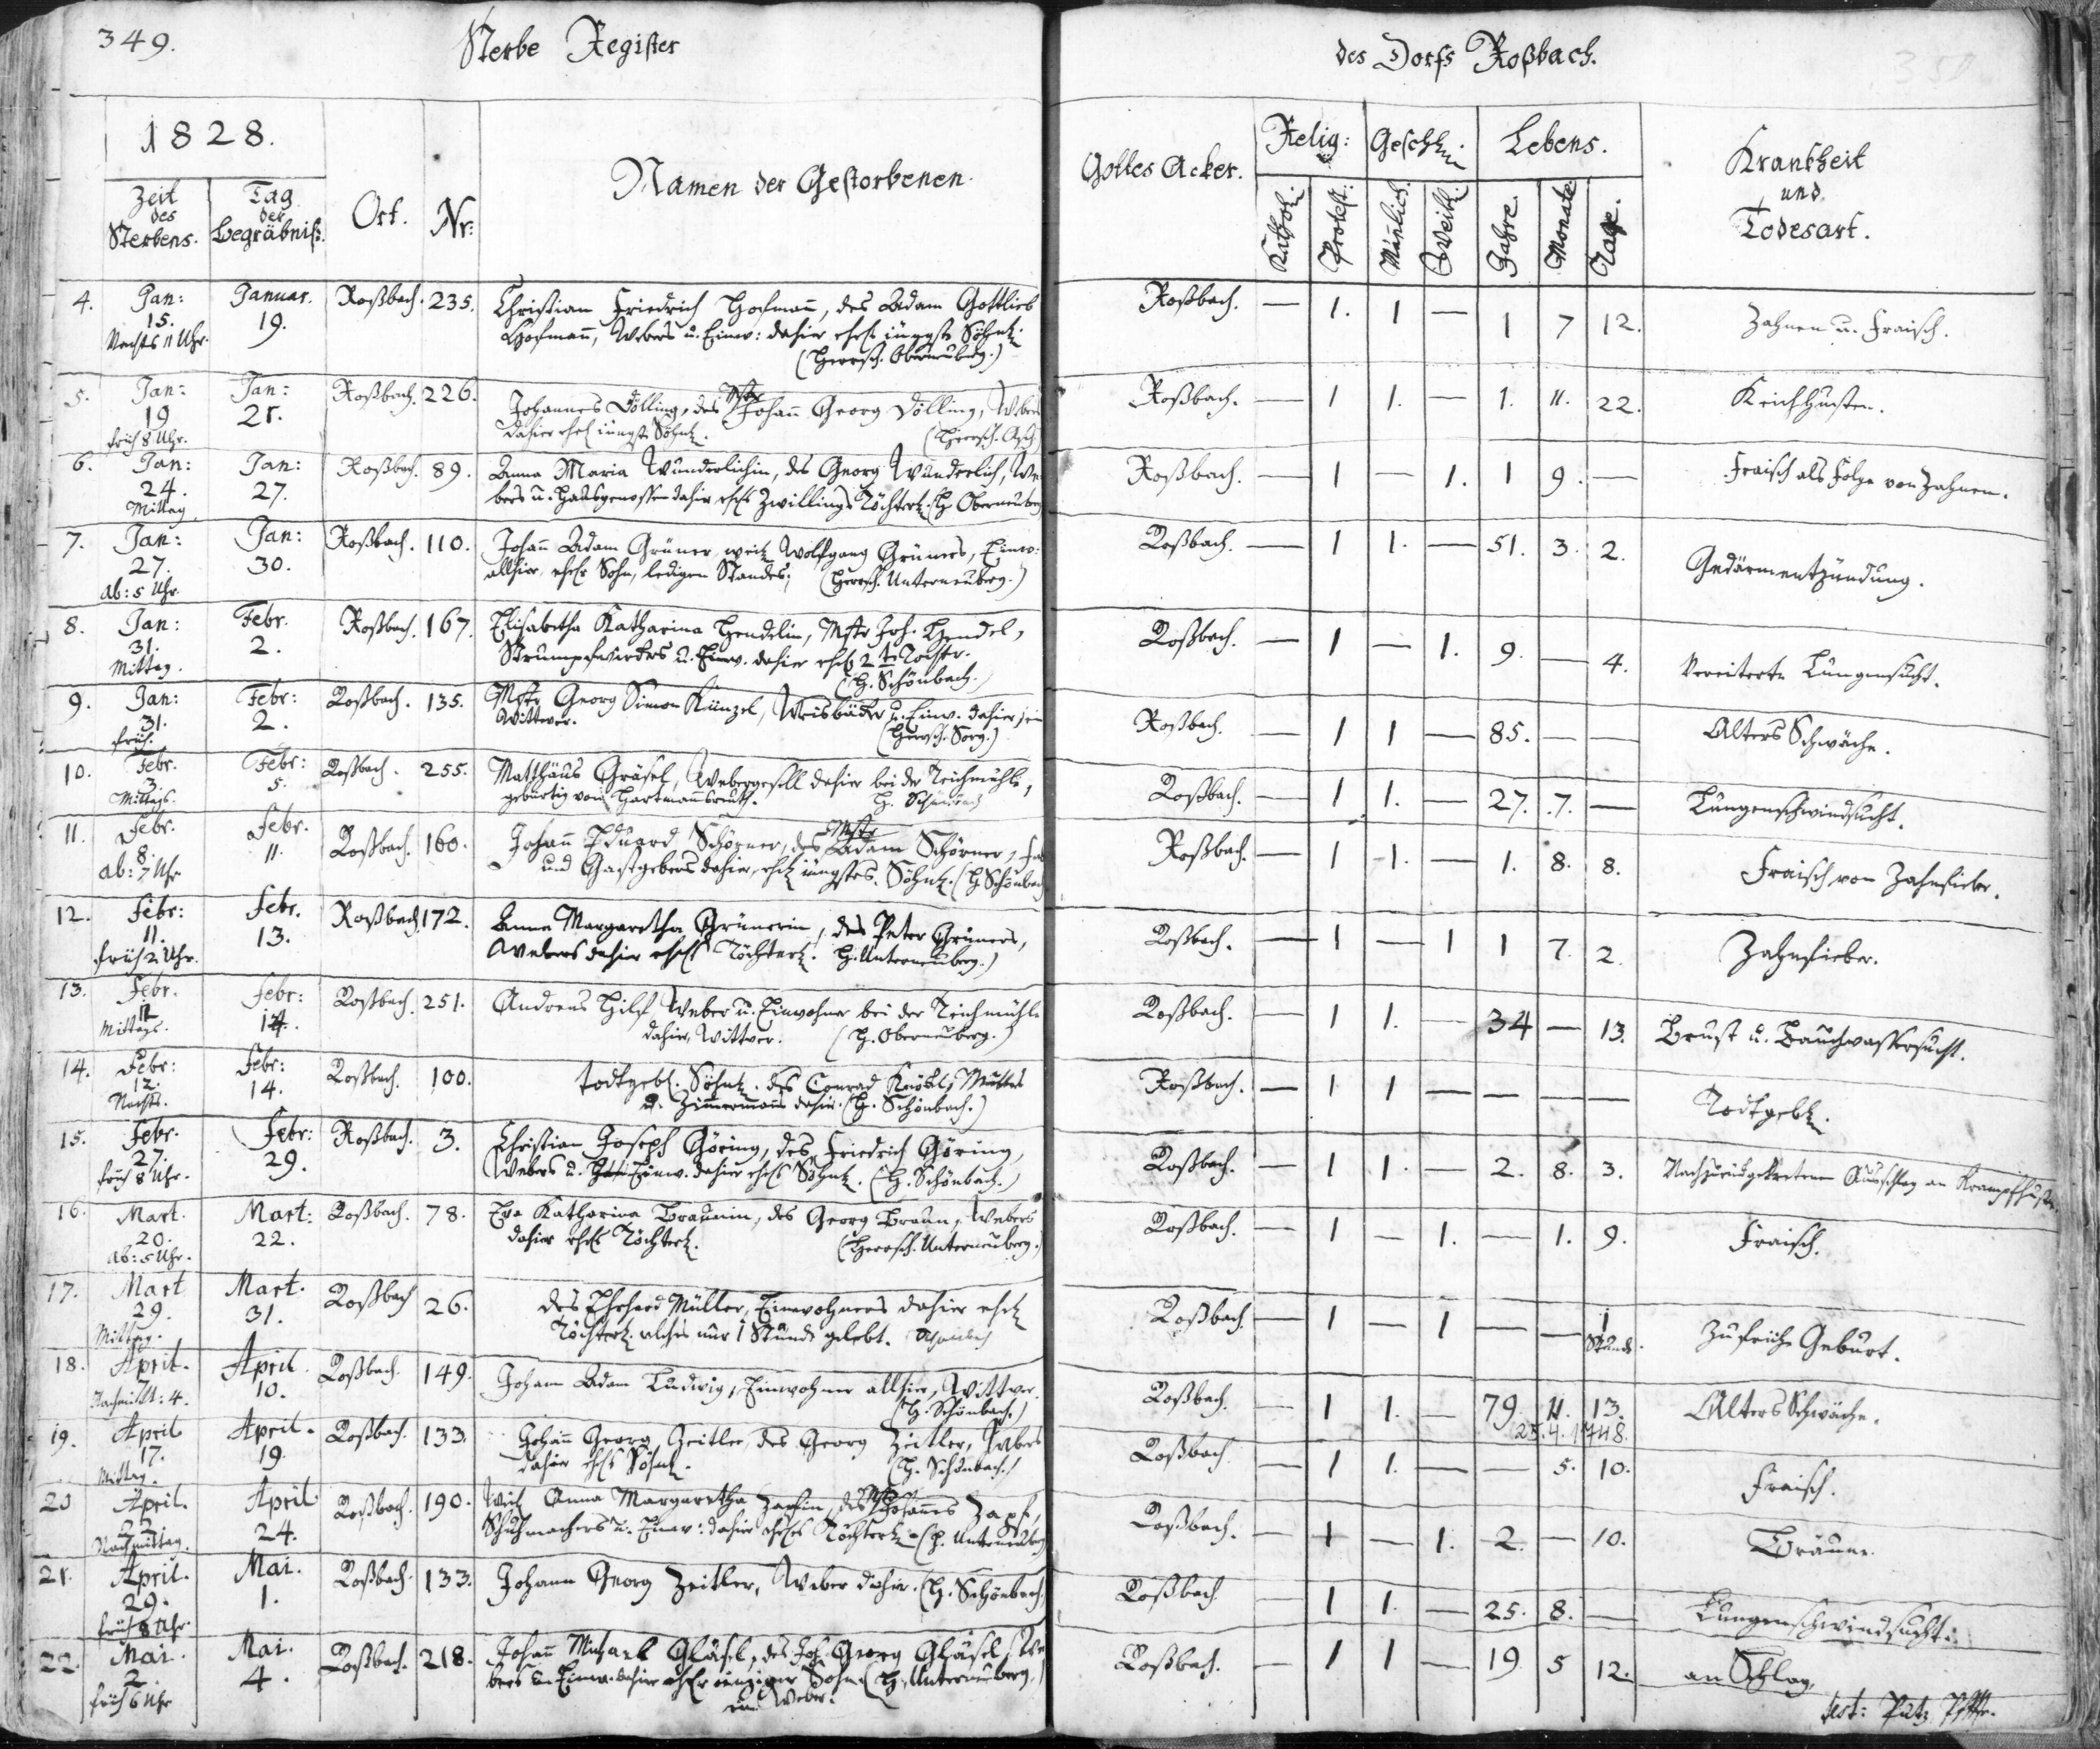 349.
Sterbe Register
des Dorfs Roßbach.
350
1828.
Zeit
des
Sterbens.
Tag
der
Begräbniß.
Ort.
Nr:
Namen der Gestorbenen.
Gottes Acker.
Relig:
Kathol.
Protest:
Geschl:
Mänlich.
Weibl:
Lebens.
Jahre.
Monate.
Tage.
Krankheit
und
Todesart.
4. Jan: Januar. Roßbach. 235. Christian Friedrich Hofmañ, des Adam Gottlieb Roßbach. — 1. 1 — 1 7 12. Zahnen u. Fraisch.
15. 19. Hofmañ, Webers u. Einw: dahier ehel. jüngstes Söhnl.
Nachts 11 Uhr. (Herrsch. Oberneuberg.)
5. Jan: Jan: Roßbach. 226. Johannes Dölling, des Mstr Johañ Georg Dölling, Webers Roßbach. — 1 1. — 1. 11. 22. Keichhusten.
19 21. dahier ehel. jüngst. Söhnl. (Herrsch. Asch)
früh 8 Uhr.
6. Jan: Jan: Roßbach. 89. Anna Maria Wunderlichin, des Georg Wunderlich, We- Roßbach. — 1 — 1. 1 9. — Fraisch als Folge von Zahnen.
24. 27. bers u. Hausgenossen dahier ehel. Zwillings Töchterl. (H. Oberneuberg
Mittag.
7. Jan: Jan: Roßbach. 110. Johañ Adam Grüner, weil. Wolfgang Grüners, Einw: Roßbach. — 1 1. — 51. 3. 2. Gedärmentzündung.
27. 30. allhier, ehel. Sohn, ledigen Standes; (Herrsch. Unterneuberg.)
ab: 5 Uhr.
8. Jan: Febr. Roßbach. 167. Elisabetha Katharina Hendelin, Mstr Joh. Hendel, Roßbach. — 1 — 1. 9. — 4. Vereiterte Lungensucht.
31. 2. Strumpfwirkers u. Einw. dahier ehel. 2te Tochter.
Mittag. (H. Schönbach.)
9. Jan: Febr: Roßbach. 135. Mstr Georg Simon Künzel, Weisbäcker u. Einw. dahier, ein Roßbach. — 1 1 — 85. — — Alters Schwäche.
31. 2. Wittwer. (Herrsch. Sorg.)
früh.
10. Febr. Febr: Roßbach. 255. Matthäus Gräsel, Webergesell dahier bei der Teichmühle, Roßbach. — 1 1. — 27. 7. — Lungenschwindsucht.
3. 5. gebürtig von Hartmansreuth. H. Schönbach
Mittags.
11. Febr. Febr. Roßbach. 160. Johañ Eduard Schörner, des Mstr Adam Schörner, Roßbach. — 1 1. — 1. 8. 8. Fraisch von Zahnfieber.
8. 11. und Gastgebers dahier, ehel. jüngstes Söhnl. (H. Schönbach
ab: 7 Uhr
12. Febr: Febr. Roßbach 172. Anna Margaretha Grünerin, des Peter Grüners, Roßbach. — 1 — 1 1 7. 2. Zahnfieber.
11. 13. Webers dahier ehel. Töchterl. (H. Unterneuberg.)
früh 2 Uhr.
13. Febr. Febr: Roßbach 251. Andreas Hilf, Weber u. Einwohner bei der Teichmühle Roßbach. — 1 1. — 34 — 13. Brust u. Bauchwassersucht.
12 14. dahier, Wittwer. (H. Oberneuberg.)
Mittags.
14. Febr: Febr: Roßbach. 100. todtgebl. Söhnl. des Conrad Knöckl, Roßbach. — 1 1 — — — — Todtgebl.
12. 14. u. Zimmermañs dahier. (H. Schönbach.)
Nachts.
15. Febr. Febr: Roßbach. 3. Christian Joseph Göring, des Friedrich Göring, Roßbach. — 1 1. — 2. 8. 3. Nach zurückgetretenem Ausschlag an Krampfhusten.
27. 29. Webers u. Einw. dahier ehel. Söhnl. (H. Schönbach.)
früh 8 Uhr.
16. Mart. Mart: Roßbach. 78. Eva Katharina Braunin, des Georg Braun, Webers Roßbach. — 1 — 1. — 1. 9. Fraisch.
20. 22. dahier ehel. Töchterl. (Herrsch. Unterneuberg.)
ab: 5 Uhr.
17. Mart Mart. Roßbach 26. des Ehrhard Müller, Einwohners dahier ehel. Roßbach. — 1 — 1 — — 1 Stunde. Zu frühe Geburt.
29. 31. Töchterl. welches nur 1 Stunde gelebt. Schönbach
Mittag.
18. April. April. Roßbach. 149. Johann Adam Ludwig, Einwohner allhier, Wittwer. Roßbach. — 1 1. — 79. 11. 13. Alters Schwäche.
10. (H. Schönbach.) 25. 4. 1748.
Nachmitt: 4.
19. April. April. Roßbach. 133. Johañ Georg Zeitler, des Georg Zeitler, Webers Roßbach. — 1 1. — — 5. 10. Fraisch.
17. 19. dahier ehel. Söhnl. (H. Schönbach.)
Mittag.
20 April. April. Roßbach. 190. Anna Margaretha Zapfin, des Mstr Johannes Zapf, Roßbach. — 1 — 1. 2. — 10. Bräune.
22. 24. Schuhmachers u. Einw: dahier ehel. Töchterl. (H. Unterneuberg
Nachmittag.
21. April. Mai. Roßbach. 133. Johann Georg Zeitler, Weber dahier. (H. Schönbach.) Roßbach — 1 1. — 25. 8. — Lungenschwindsucht.
29. 1.
früh 8 Uhr.
22. Mai. Mai. Roßbach. 218. Johañ Michael Gläsel, des Joh. Georg Gläsel, We- Roßbach. — 1 1 — 19 5 12. an Schlag.
2. 4. bers u. Einw. dahier ehel. einziger Sohn (H. Unterneuberg.)
früh 6 Uhr Weber.
test: Putz Pfrr.